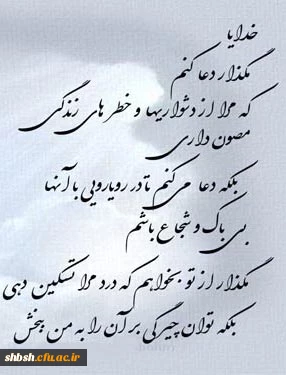 خدایا
مگذار دعا کنم
که مرا از دشواریها و خطر های زندگی
مصون داری
بلکه دعا می کنم تا در رویارویی با آنها
بی باک و شجاع باشم
مگذار از تو بخواهم که درد مرا تسکین دهی
بلکه توان چیرگی بر آن را به من ببخش
shbsh.cfu.ac.ir